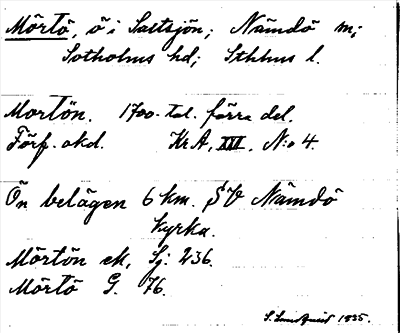 Mörtö, ö i Saltsjön; Nämdö m;
Sotholms hd; Sthlms l.
Mortön. 1700-tal. förra del.
Förf. okd. Kr A, XVI, N:o 4.
Ön belägen 6 km. SV Nämdö
kyrka.
Mörtön ek, Sj: 236.
Mörtö G. 76.
S. Lundquist 1935.